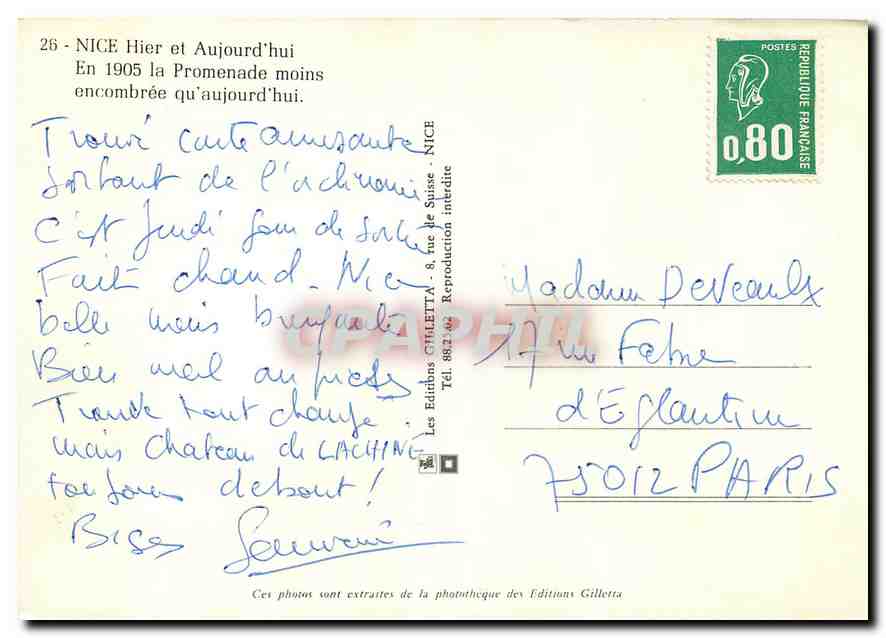 26 - NICE Hier et Aujourd'hui
En 1905 la Promenade moins
encombrée qu'aujourd'hui.
Trouvé carte amusante
sortant de
C'est Jeudi jour de sortie
Fait chaud - Nice
belle mais bruyante
Bien mal aux pieds -
Trouve tout changé.
mais Chateau de LACHINE
toujours debout !
Bises
Les Editions GILLETTA - 8, rue de Suisse - NICE
Tél. 88.25.62 Reproduction interdite
POSTES
REPUBLIQUE FRANÇAISE
0,80
Madame DeVeaulx
17 rue Fabre
d'Eglantine
75012 PARIS
CPAPHIL
Ces photos sont extraites de la photothèque des Editions Gilletta